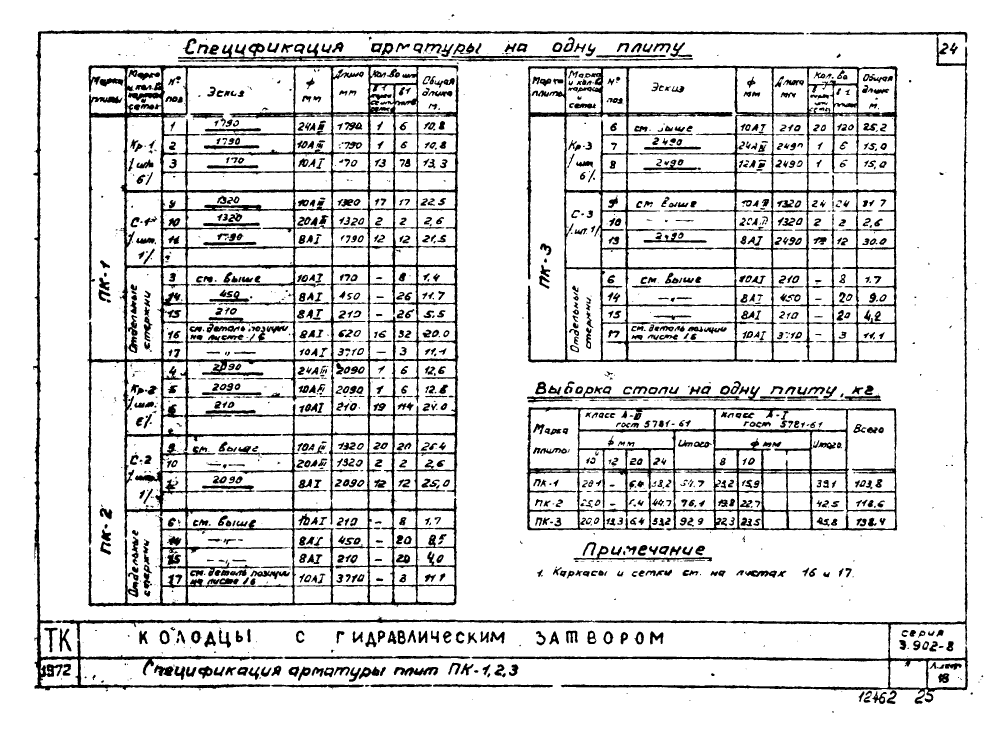 Спецификация арматуры на одну плиту
24
Марка плиты | Марка и кол-во каркасов и сеток | № поз | Эскиз | ф мм | Длина мм | Кол-во шт | Общая длина м.
ПК-1
Кр-1 / шт. 6/
1 | 1790 | 24АIII | 1790 | 1 | 6 | 10,8
2 | 1790 | 10АIII | 1790 | 1 | 6 | 10,8
3 | 170 | 10АI | 170 | 13 | 78 | 13,3
С-1 / шт. 1/
9 | 1320 | 10АIII | 1320 | 17 | 17 | 22,5
10 | 1320 | 20АIII | 1320 | 2 | 2 | 2,6
11 | 1790 | 8АI | 1790 | 12 | 12 | 21,5
Отдельные стержни
3 | см. выше | 10АI | 170 | – | 8 | 1,4
14 | 450 | 8АI | 450 | – | 26 | 11,7
15 | 210 | 8АI | 210 | – | 26 | 5,5
16 | см. деталь позиции на листе 16 | 8АI | 620 | 16 | 32 | 20,0
17 | –„– | 10АI | 3710 | – | 3 | 11,1
ПК-2
Кр-2 / шт. 6/
4 | 2090 | 24АIII | 2090 | 1 | 6 | 12,6
5 | 2090 | 10АIII | 2090 | 1 | 6 | 12,6
6 | 210 | 10АI | 210 | 19 | 114 | 24,0
С-2 / шт. 1/
9 | см. выше | 10АIII | 1320 | 20 | 20 | 26,4
10 | –„– | 20АIII | 1320 | 2 | 2 | 2,6
12 | 2090 | 8АI | 2090 | 12 | 12 | 25,0
Отдельные стержни
6 | см. выше | 10АI | 210 | – | 8 | 1,7
14 | –„– | 8АI | 450 | – | 20
15 | –„– | 8АI | 210 | – | 20 | 4,0
17 | см. деталь позиции на листе 16 | 10АI | 3710 | – | 3 | 11,1
Марка плиты | Марка и кол-во каркасов и сеток | № поз | Эскиз | ф мм | Длина мм | Кол-во шт | Общая длина м.
ПК-3
Кр-3 / шт. 6/
6 | см. выше | 10АI | 210 | 20 | 120 | 25,2
7 | 2490 | 24АIII | 2490 | 1 | 6 | 15,0
8 | 2490 | 12АIII | 2490 | 1 | 6 | 15,0
С-3 / шт. 1/
9 | см. выше | 10АIII | 1320 | 24 | 24 | 31,7
10 | –„– | 20АIII | 1320 | 2 | 2 | 2,6
13 | 2490 | 8АI | 2490 | 12 | 12 | 30,0
Отдельные стержни
6 | см. выше | 10АI | 210 | – | 8 | 1,7
14 | –„– | 8АI | 450 | – | 20 | 9,0
15 | –„– | 8АI | 210 | – | 20 | 4,2
17 | см. деталь позиции на листе 16 | 10АI | 3710 | – | 3 | 11,1
Выборка стали на одну плиту, кг.
Марка плиты | класс А-III гост 5781-61 | класс А-I гост 5781-61 | Всего
ф мм | Итого | ф мм | Итого
10 | 12 | 20 | 24 | 8 | 10
ПК-1 | – | 6,4 | 23,2 | 15,9 | 39,1 | 103,8
ПК-2 | – | 6,4 | 44,7 | 76,1 | 19,8 | 22,7 | 42,5 | 118,6
ПК-3 | 20,0 | 13,3 | 6,4 | 53,2 | 92,9 | 22,3 | 23,5 | 45,8 | 138,4
Примечание
1. Каркасы и сетки см. на листах 16 и 17.
ТК
КОЛОДЦЫ С ГИДРАВЛИЧЕСКИМ ЗАТВОРОМ
серия 3.902-8
1972
Спецификация арматуры плит ПК-1,2,3
Лист 18
12462 25